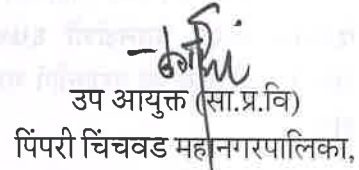 उप आयुक्त (सा.प्र.वि)
पिंपरी चिंचवड महानगरपालिका,